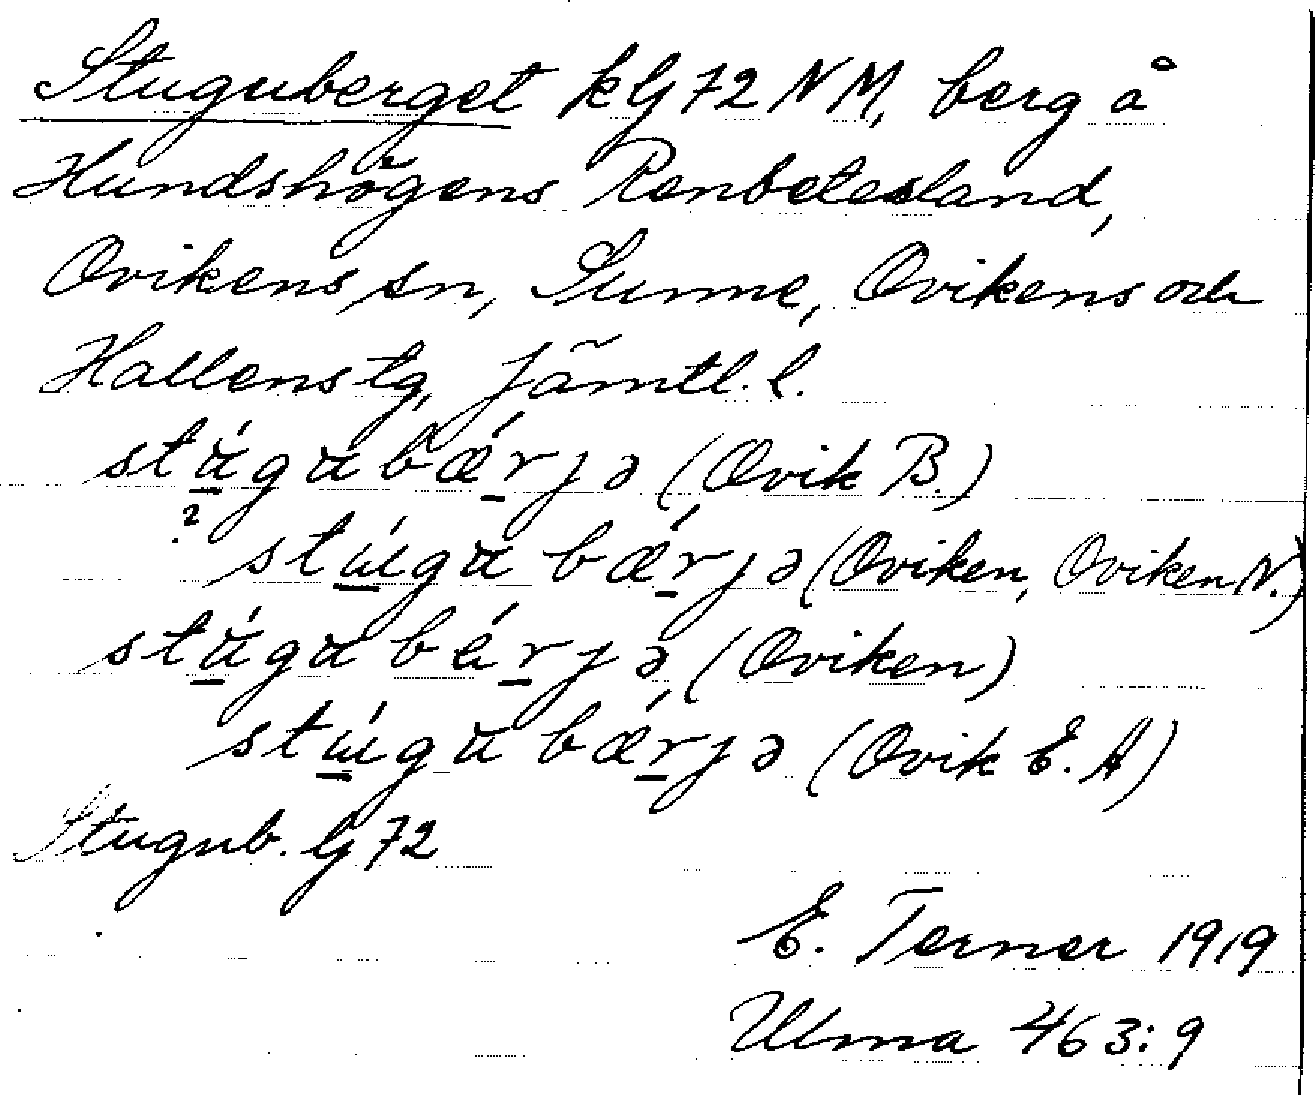 Stuguberget klj 72 NM, berg å
Hundshögens Renbetesland,
Ovikens sn, Sunne, Ovikens och
Hallens tg, Jämtl. l.
stúgubǽrjə (Ovik B.)
?
stúɯgu bǽrjə (Oviken, Oviken N.)
stúgu bérjə, (Oviken)
stúɯgu bǽrjə (Ovik E. A)
Stugub. lj 72
E. Terner 1919
Ulma 463:9